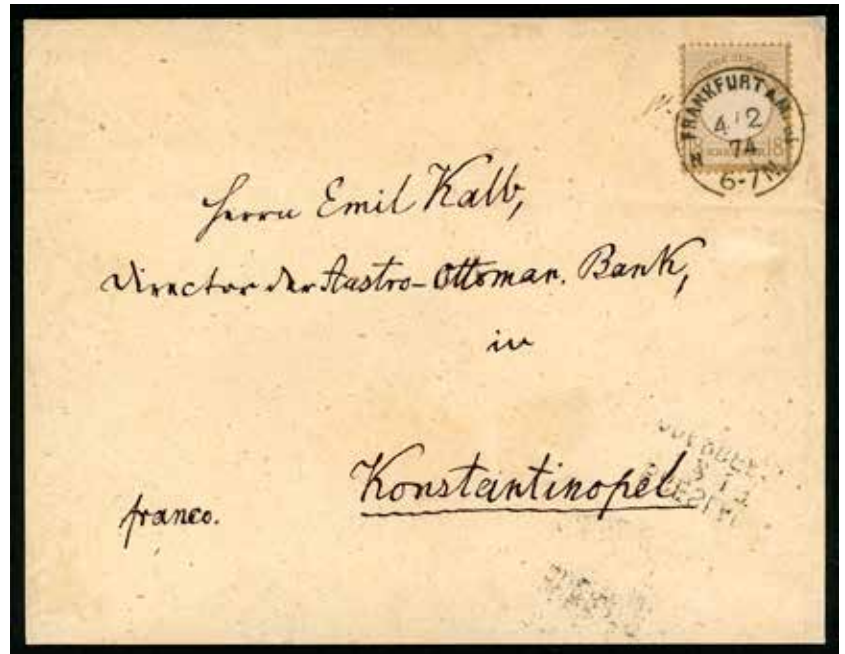 FRANKFURT A.M.
4 12
74
6-7N.
18 18
Herrn Emil Kalb,
Director der Austro-Ottoman. Bank,
in
Konstantinopel
franco.